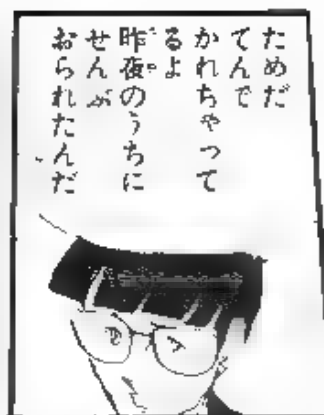 ためだ
てんで
かれちゃって
るよ
昨夜のうちに
せんぶ
おられたんだ